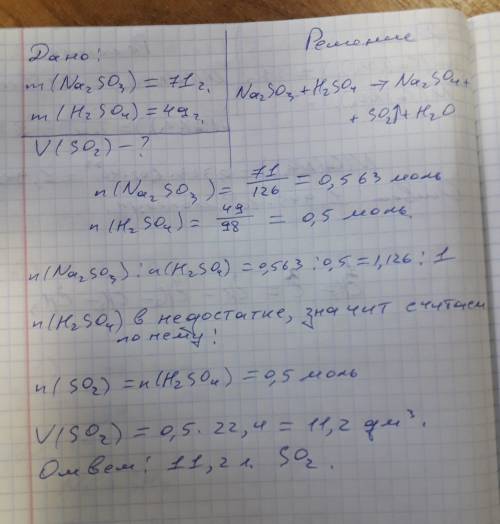 Дано:
m(Na₂SO₃) = 71г.
m(H₂SO₄) = 49г.
V(SO₂) – ?
Решение
Na₂SO₃ + H₂SO₄ → Na₂SO₄ +
+ SO₂↑ + H₂O
n(Na₂SO₃) = 71/126 = 0,563 моль
n(H₂SO₄) = 49/98 = 0,5 моль.
n(Na₂SO₃) : n(H₂SO₄) = 0,563 : 0,5 = 1,126 : 1
n(H₂SO₄) в недостатке, значит считаем
по нему!
n(SO₂) = n(H₂SO₄) = 0,5 моль
V(SO₂) = 0,5 · 22,4 = 11,2 дм³.
Ответ: 11,2 л. SO₂.